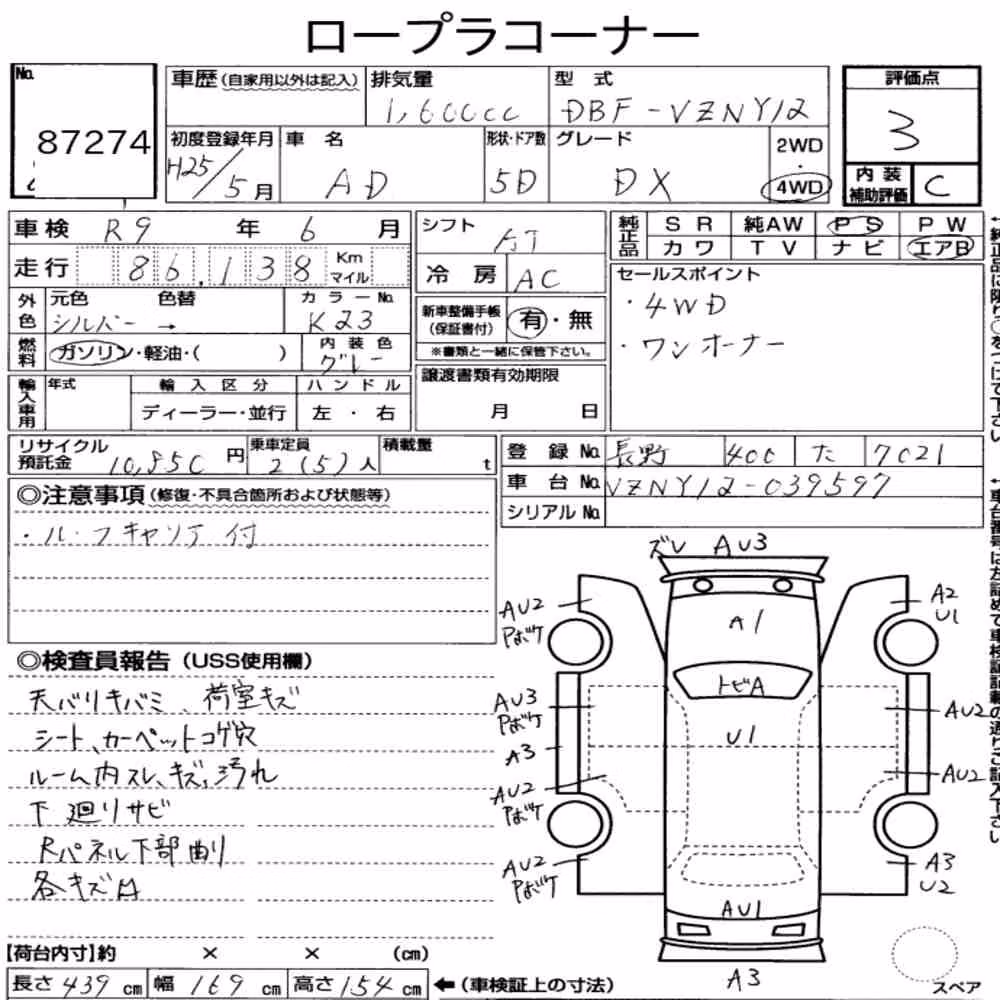 ロープラコーナー
No.
87274
車歴(自家用以外は記入)
排気量
1,600cc
型式
DBF-VZNY12
評価点
3
初度登録年月
H25/5月
車名
AD
形状・ドア数
5D
グレード
DX
2WD
・
4WD
内装
補助評価
C
車検 R9 年 6 月
走行 86,138 Km
マイル
シフト
AT
冷房 AC
純正品
SR 純AW PS PW
カワ TV ナビ エアB
外色
元色 色替
シルバー →
カラーNo.
K23
新車整備手帳
(保証書付)
有・無
※書類と一緒に保管下さい。
セールスポイント
・4WD
・ワンオーナー
燃料
ガソリン・軽油・( )
内装色
グレー
輸入車用
年式
輸入区分
ディーラー・並行
ハンドル
左・右
譲渡書類有効期限
月 日
リサイクル
預託金 10,850円
乗車定員
2(5)人
積載量
t
登録No. 長野 400 た 7021
車台No. VZNY12-039597
シリアルNo.
◎注意事項(修復・不具合箇所および状態等)
・ルーフキャリア付
◎検査員報告(USS使用欄)
天バリキバミ、荷室キズ
シート、カーペットコゲ穴
ルーム内スレ、キズ、汚れ
下廻りサビ
Rパネル下部曲り
各キズ凹
【荷台内寸】約 × × (cm)
長さ439cm 幅169cm 高さ154cm ←(車検証上の寸法)
ズレ AU3
AU2
Pボケ
A1
A2
U1
トビA
AU3
Pボケ
A3
U1
AU2
AU2
Pボケ
AU2
AU2
Pボケ
A3
U2
AU1
A3
スペア